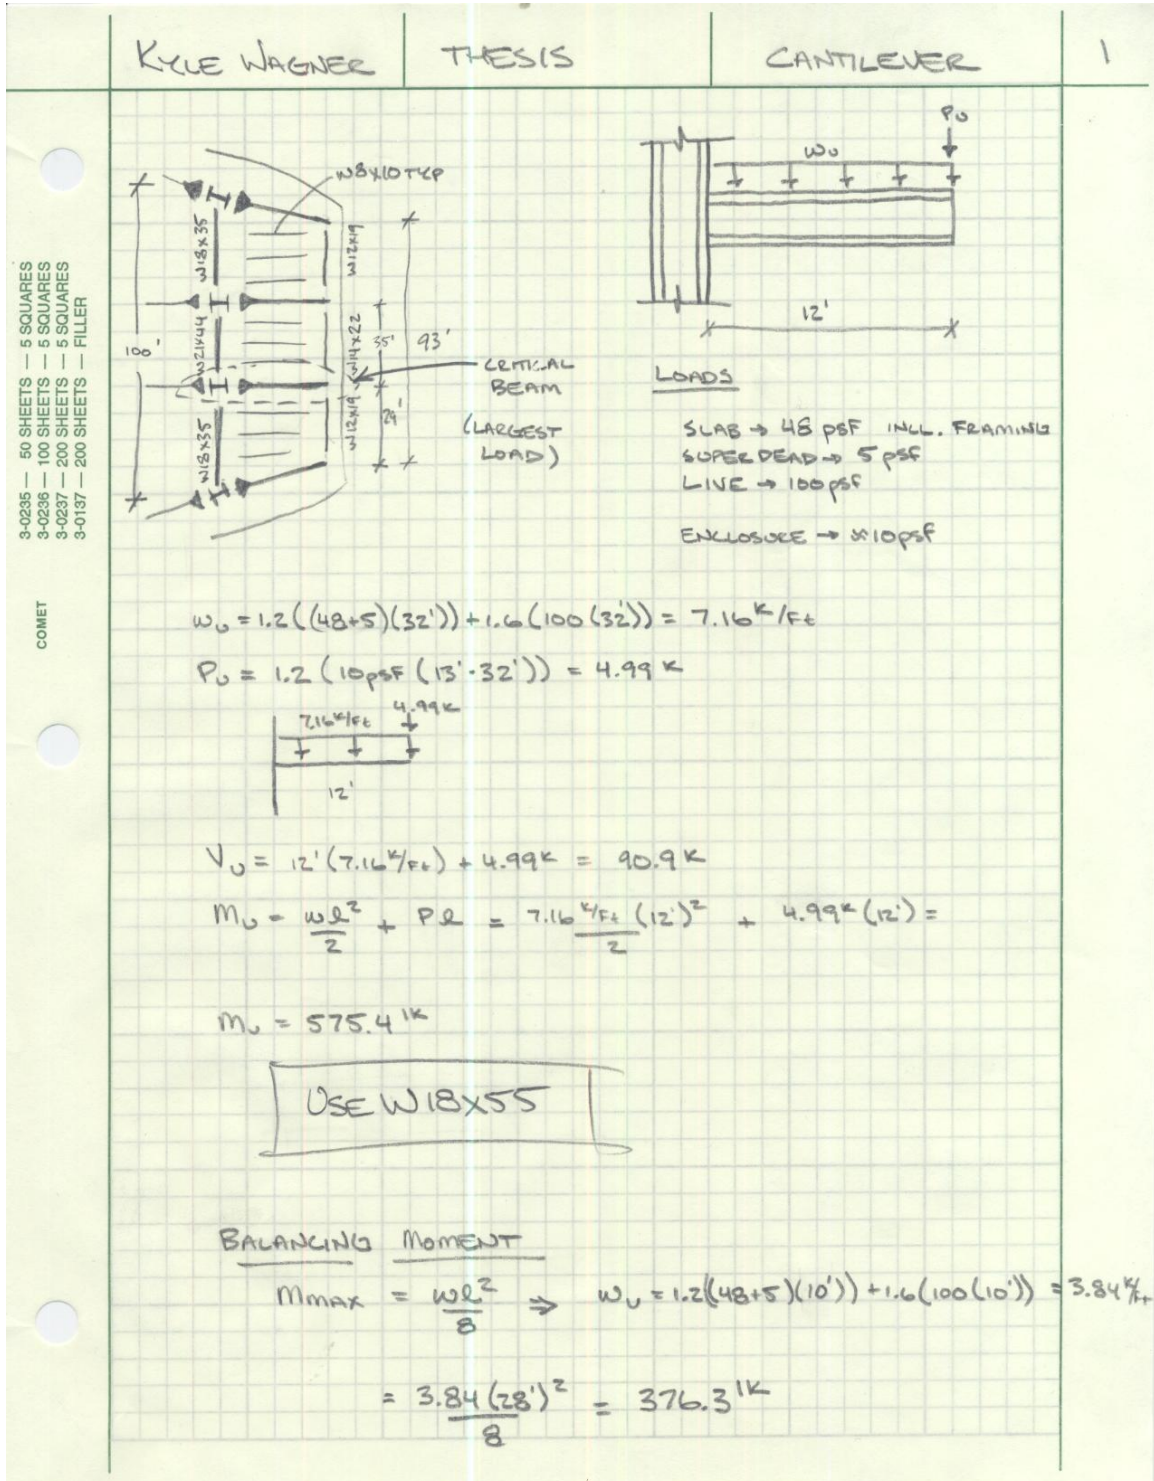 KYLE WAGNER THESIS CANTILEVER 1
3-0235 — 50 SHEETS — 5 SQUARES
3-0236 — 100 SHEETS — 5 SQUARES
3-0237 — 200 SHEETS — 5 SQUARES
3-0137 — 200 SHEETS — FILLER
COMET
W8X10 TYP
W18X35
W21X44
W18X35
W12X19
W14X22
W12X19
100'
35'
93'
29'
CRITICAL
BEAM
(LARGEST
LOAD)
Pu
Wu
12'
LOADS
SLAB → 48 psf INCL. FRAMING
SUPER DEAD → 5 psf
LIVE → 100 psf
ENCLOSURE → 10 psf
wu = 1.2((48+5)(32')) + 1.6(100(32')) = 7.16 K/Ft
Pu = 1.2(10psf(13'·32')) = 4.99 K
7.16 K/Ft 4.99K
12'
Vu = 12'(7.16 K/Ft) + 4.99K = 90.9 K
Mu = wl²/2 + Pl = 7.16 K/Ft (12')²/2 + 4.99K (12') =
Mu = 575.4 'K
USE W18X55
BALANCING MOMENT
MMAX = wl²/8 ⇒ wu = 1.2((48+5)(10')) + 1.6(100(10')) = 3.84 K/Ft
= 3.84(28')²/8 = 376.3 'K